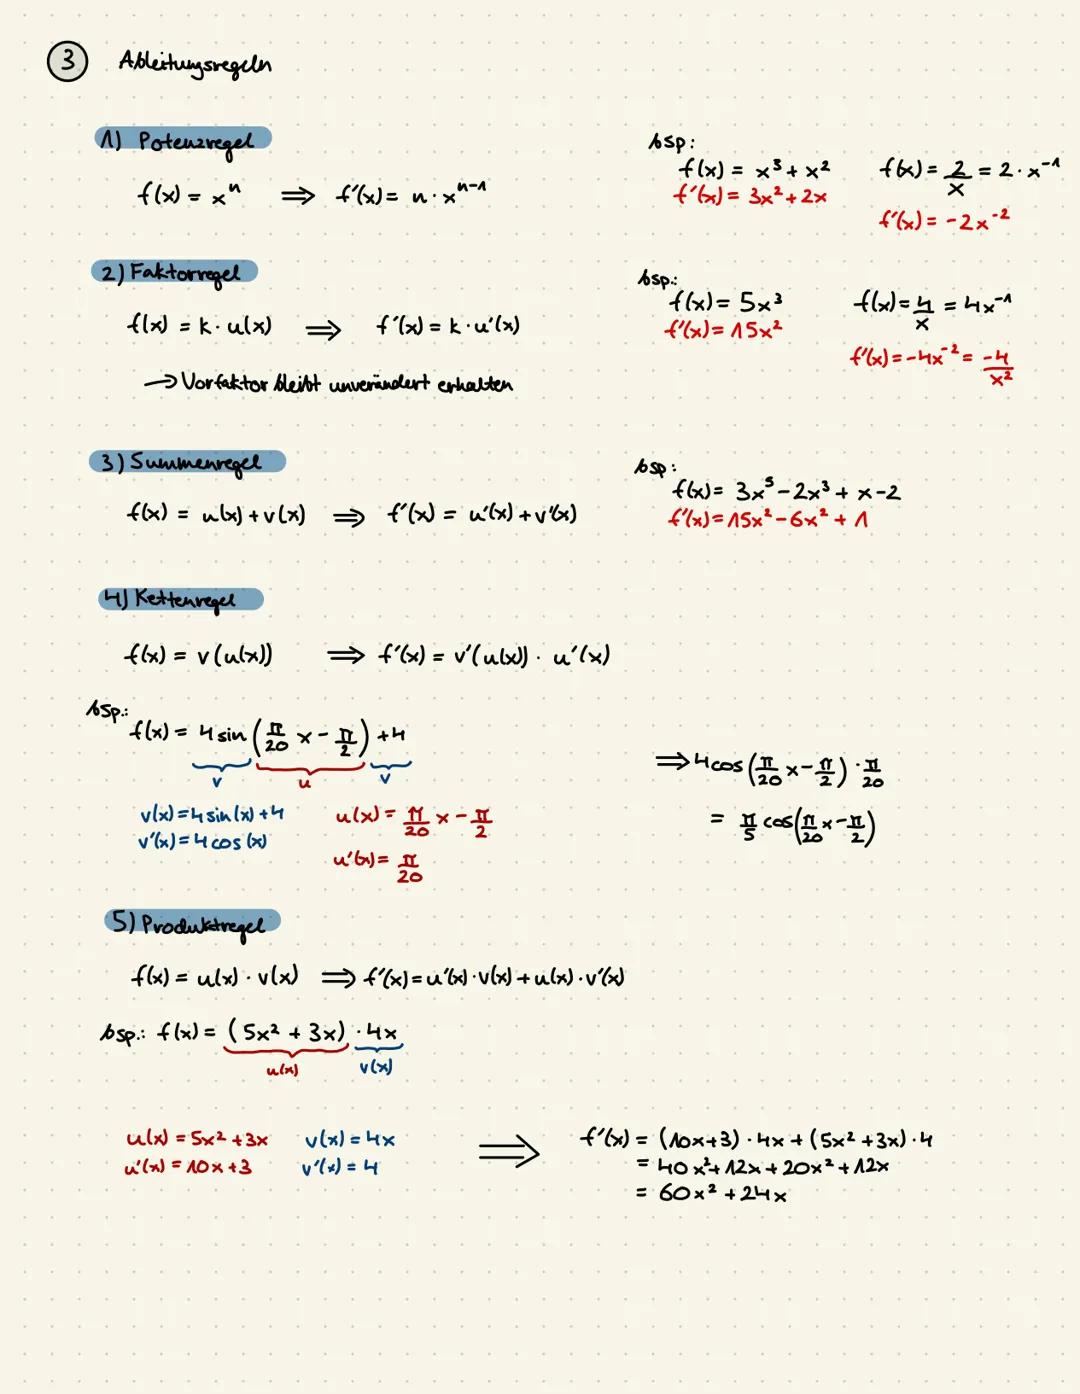 3 Ableitungsregeln
1) Potenzregel
bsp:
f(x) = xⁿ ⟹ f'(x) = n · xⁿ⁻¹
f(x) = x³ + x²
f'(x) = 3x² + 2x
f(x) = 2/x = 2 · x⁻¹
f'(x) = -2x⁻²
2) Faktorregel
bsp.:
f(x) = k · u(x) ⟹ f'(x) = k · u'(x)
→ Vorfaktor bleibt unverändert erhalten
f(x) = 5x³
f'(x) = 15x²
f(x) = 4/x = 4x⁻¹
f'(x) = -4x⁻² = -4/x²
3) Summenregel
bsp:
f(x) = u(x) + v(x) ⟹ f'(x) = u'(x) + v'(x)
f(x) = 3x⁵ - 2x³ + x - 2
f'(x) = 15x² - 6x² + 1
4) Kettenregel
f(x) = v(u(x)) ⟹ f'(x) = v'(u(x)) · u'(x)
bsp.:
f(x) = 4 sin (π/20 x - π/2) + 4
v u v
v(x) = 4 sin(x) + 4
v'(x) = 4 cos(x)
u(x) = π/20 x - π/2
u'(x) = π/20
⟹ 4 cos (π/20 x - π/2) · π/20
= π/5 cos (π/20 x - π/2)
5) Produktregel
f(x) = u(x) · v(x) ⟹ f'(x) = u'(x) · v(x) + u(x) · v'(x)
bsp.: f(x) = (5x² + 3x) · 4x
u(x) v(x)
u(x) = 5x² + 3x
u'(x) = 10x + 3
v(x) = 4x
v'(x) = 4
⟹ f'(x) = (10x+3) · 4x + (5x² + 3x) · 4
= 40x² + 12x + 20x² + 12x
= 60x² + 24x